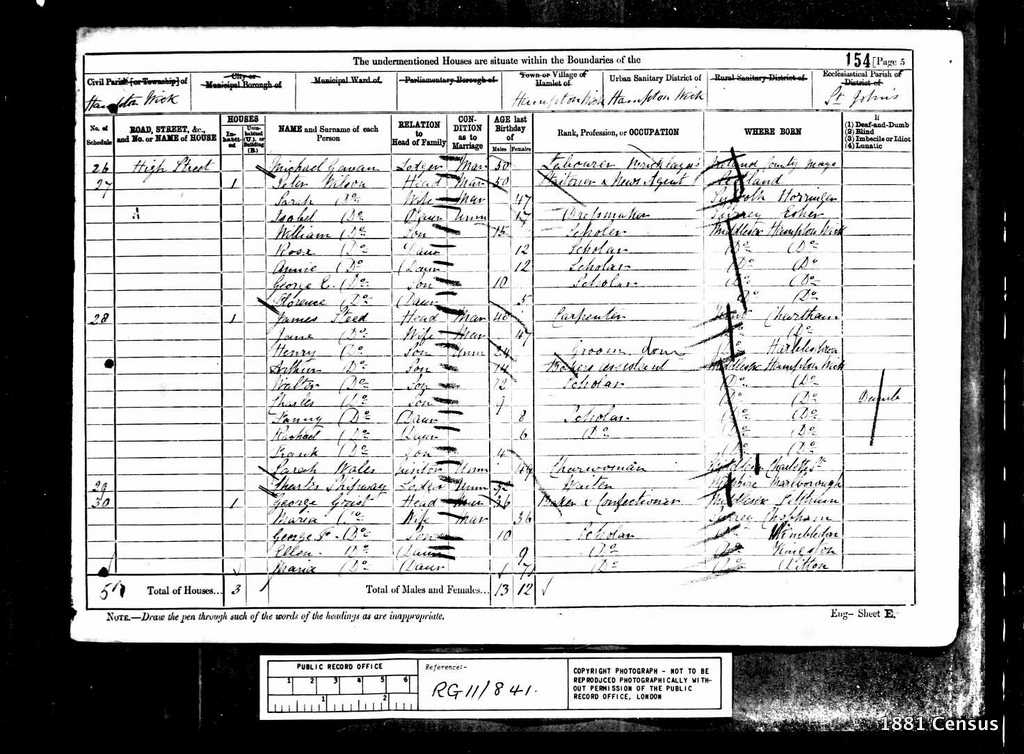 The undermentioned Houses are situate within the Boundaries of the 154 [Page 5
Civil Parish [or Township] of City or Municipal Borough of Municipal Ward of Parliamentary Borough of Town or Village or Hamlet of Urban Sanitary District of Rural Sanitary District of Ecclesiastical Parish or District of
Hampton Wick Hampton Wick Hampton Wick St John's
No. of Schedule ROAD, STREET, &c., and No. or NAME of HOUSE HOUSES Inhabited Uninhabited (U.), or Building (B.) NAME and Surname of each Person RELATION to Head of Family CONDITION as to Marriage AGE last Birthday of Males Females Rank, Profession, or OCCUPATION WHERE BORN If (1) Deaf-and-Dumb (2) Blind (3) Imbecile or Idiot (4) Lunatic
26 High Street Michael Lodger Mar 50 Labourer Ireland County Mayo
27 1 Peter Wilson Head Mar 50 Stationer & News Agent Scotland
Sarah Do Wife Mar 47 Suffolk Horringer
Isabel Do Daur Unm 17 Dressmaker Surrey Esher
William Do Son 15 Scholar Middlesex Hampton Wick
Rose Do Daur 12 Scholar Do Do
Annie Do Daur 12 Scholar Do Do
George E. Do Son 10 Scholar Do Do
Florence Do Daur 5 Do Do
28 1 James Steed Head Mar 46 Carpenter Kent Chartham
Jane Do Wife Mar 47 Do Do
Henry Do Son Unm 24 Groom dom Do Harbledown
Arthur Do Son 14 assistant Middlesex Hampton Wick
Walter Do Son 12 Scholar Do Do
Charles Do Son 9 Do Do Dumb
Fanny Do Daur 8 Scholar Do Do
Rachael Do Daur 6 Do Do Do
Frank Do Son 4 Do Do
Sarah Wales Visitor Unm 49 Charwoman
29 Charles Shipway Lodger Unm Waiter Marlborough
30 1 George Head Mar 36 Baker & Confectioner Middlesex
Maria Do Wife Mar 36 Surrey Clapham
George F. Do Son 10 Scholar Do Wimbledon
Ellen Do Daur 9 Do Do Kingston
Maria Do Daur 7 Do Do Ditton
5 Total of Houses... 3 Total of Males and Females... 13 12
NOTE.—Draw the pen through such of the words of the headings as are inappropriate. Eng- Sheet E.
PUBLIC RECORD OFFICE
1 2 3 4 5 6
1 2
Reference:-
RG 11/841.
COPYRIGHT PHOTOGRAPH - NOT TO BE
REPRODUCED PHOTOGRAPHICALLY WITH-
OUT PERMISSION OF THE PUBLIC
RECORD OFFICE, LONDON
1881 Census